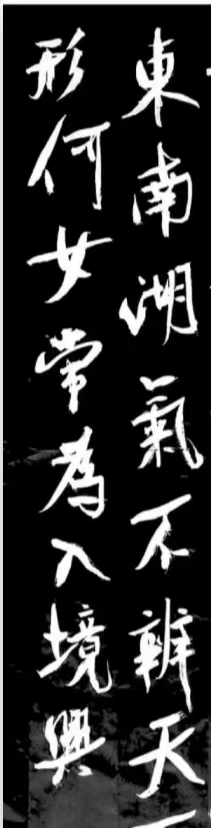 東南湖氣不辨天
形何女常為入境興